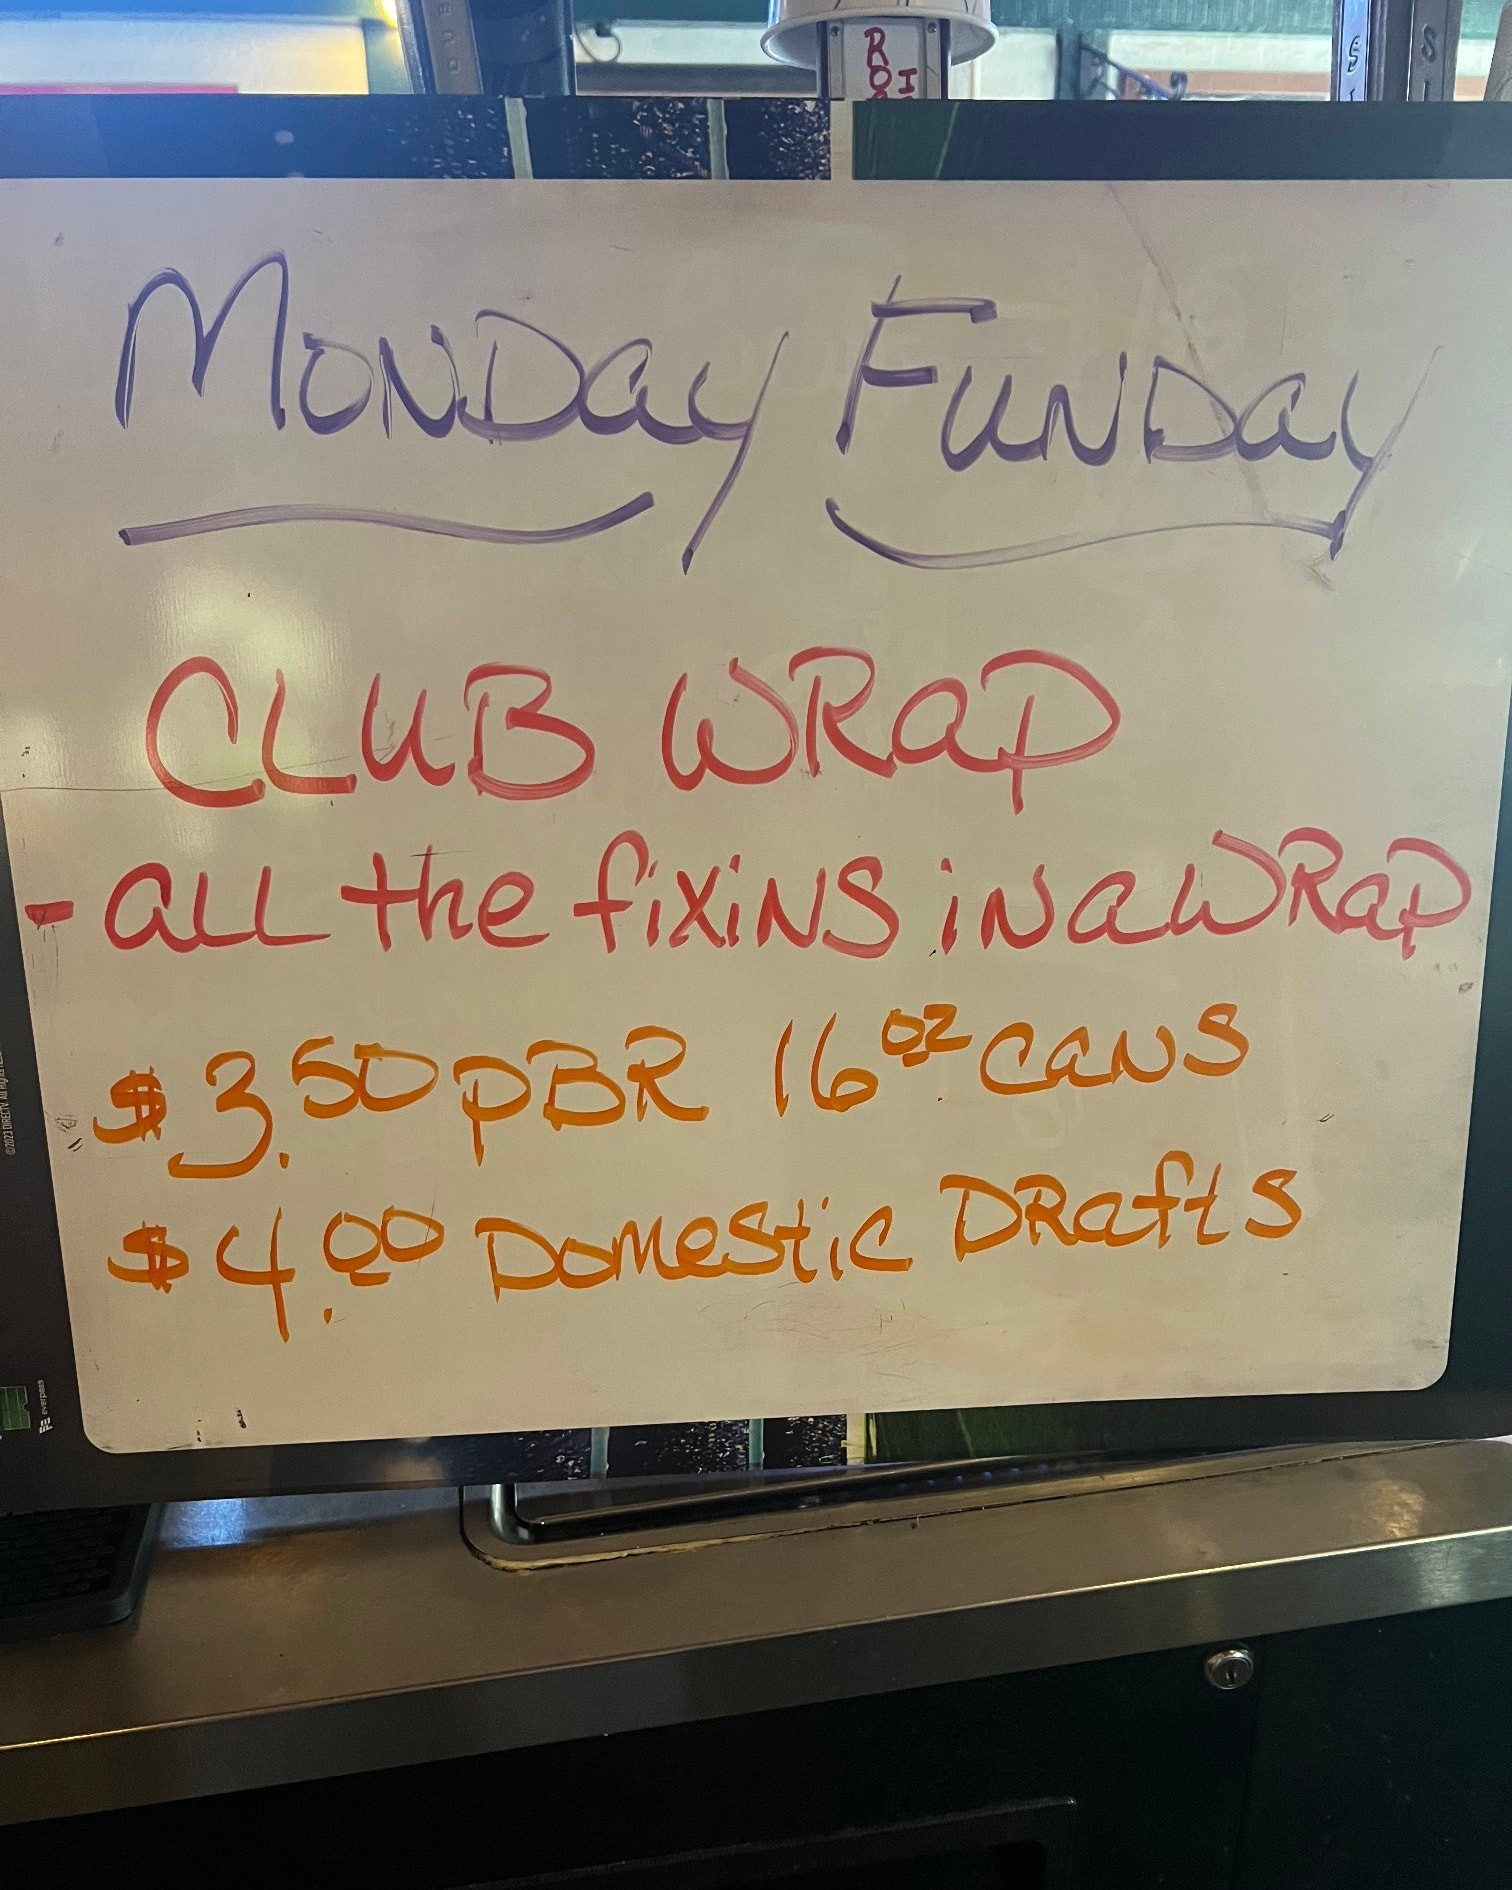 MONDay FUNDay
CLUB WRaP
- aLL the fixiNS iN a WRaP
$3.50 PBR 16 oz cans
$4.00 Domestic DRafts
©2023 DIRECTV. All Rights
everpass